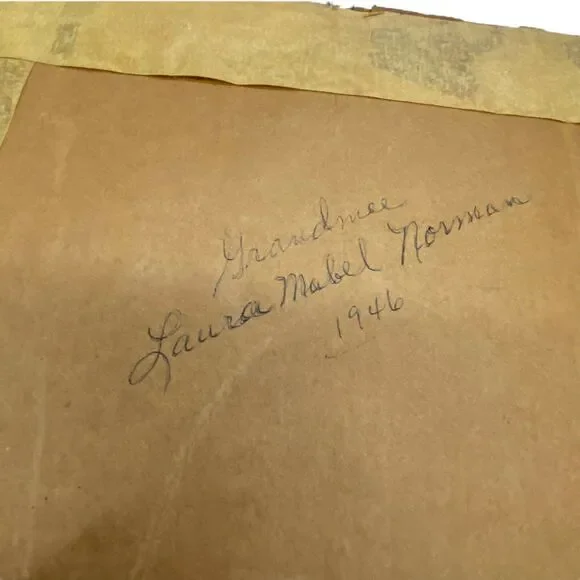 Grandmee
Laura Mabel Norman
1946